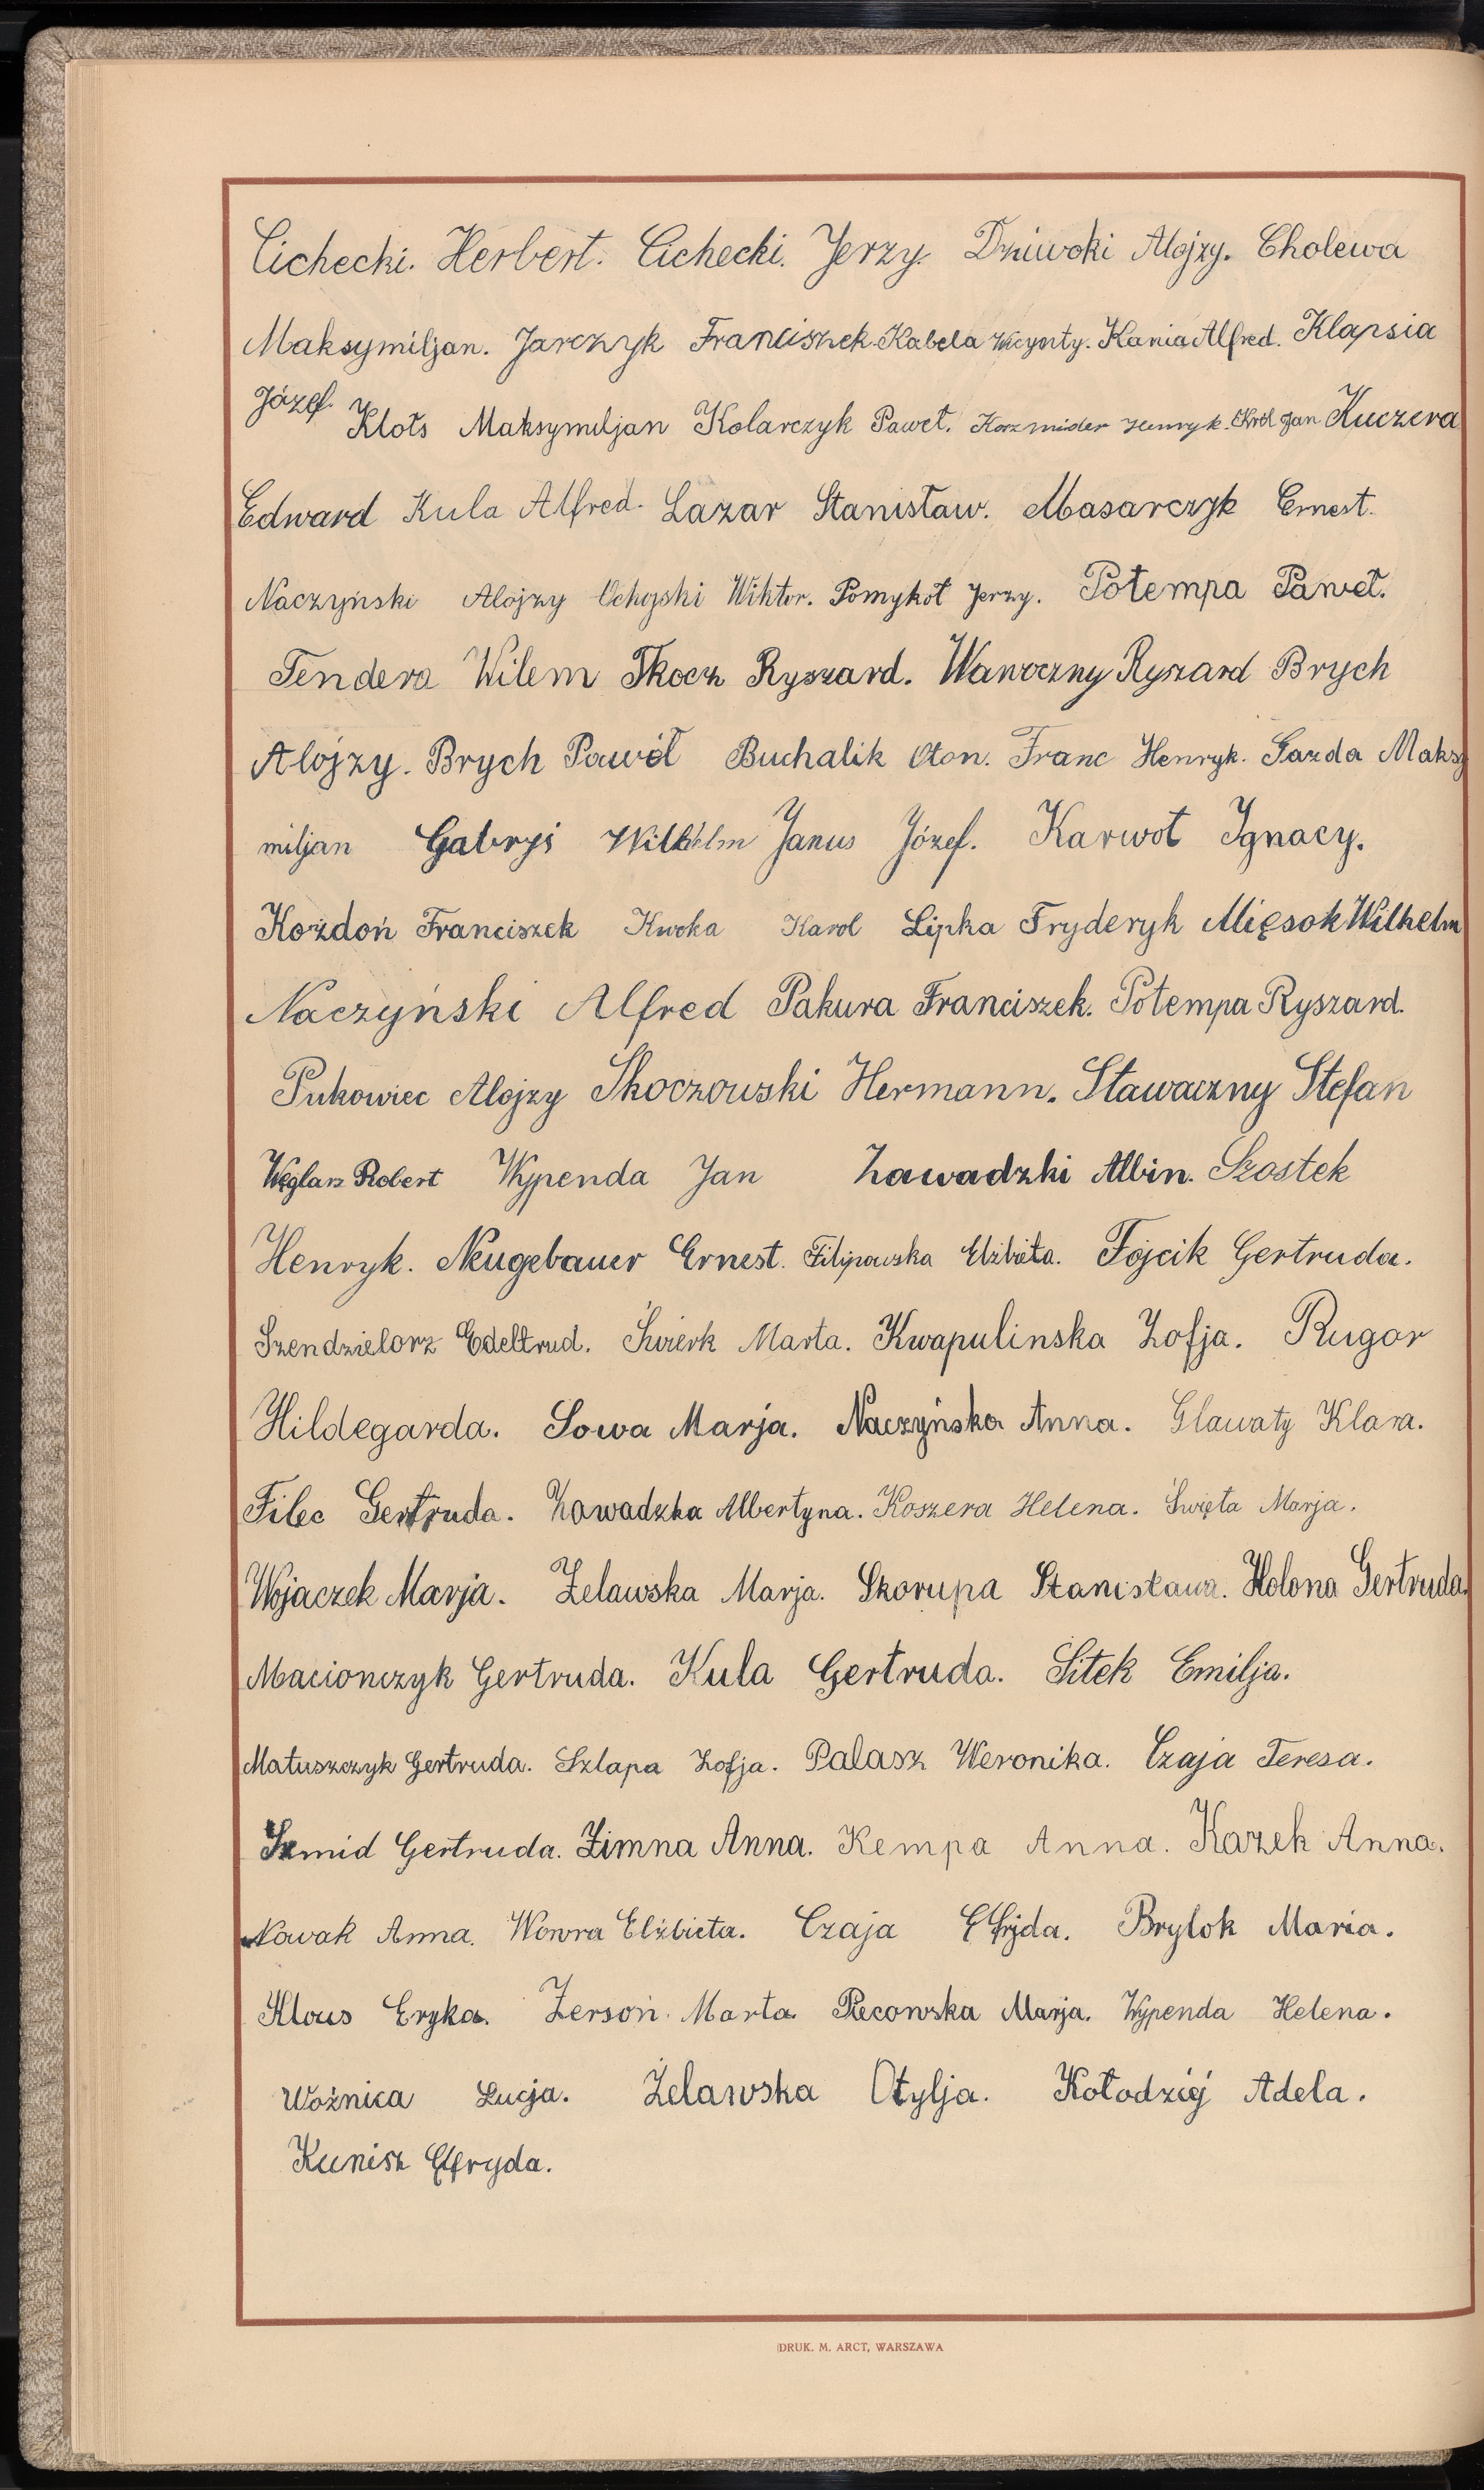 Cichecki. Herbert. Cichecki. Jerzy. Dziwoki Alojzy. Cholewa
Maksymiljan. Jarczyk Franciszek. Kabela Wicynty. Kania Alfred. Klapsia
Józef. Klots Maksymiljan Kolarczyk Paweł. Korzmider Henryk. Król Jan Kuczera
Edward Kula Alfred. Lazar Stanisław. Masarczyk Ernest.
Naczyński Alojzy Ochojski Wiktor. Pomykoł Jerzy. Potempa Paweł.
Tendera Wilem Tkocz Ryszard. Wawoczny Ryszard Brych
Alojzy. Brych Pawół Buchalik Oton. Franc Henryk. Gazda Maksy
miljan Gabryś Wilhelm Janus Józef. Karwot Ignacy.
Kożdoń Franciszek Kwoka Karol Lipka Fryderyk Mięsok Wilhelm
Naczyński Alfred Pakura Franciszek. Potempa Ryszard.
Pukowiec Alojzy Skoczowski Hermann. Stawaczny Stefan
Węglarz Robert Wypenda Jan Zawadzki Albin. Szostek
Henryk. Neugebauer Ernest. Filipowska Elżbieta. Fojcik Gertruda.
Szendzielorz Edeltrud. Świerk Marta. Kwapulinska Zofja. Rugor
Hildegarda. Sowa Marja. Naczyńska Anna. Glawaty Klara.
Filec Gertruda. Zawadzka Albertyna. Koszera Helena. Święta Marja.
Wojaczek Marja. Żelawska Marja. Skorupa Stanisława. Holona Gertruda.
Macionczyk Gertruda. Kula Gertruda. Sitek Emilja.
Matuszczyk Gertruda. Szlapa Zofja. Palasz Weronika. Czaja Teresa.
Szmid Gertruda. Zimna Anna. Kempa Anna. Kazek Anna.
Nowak Anna. Wowra Elżbieta. Czaja Elfryda. Brylok Maria.
Klous Eryka. Żersoń Marta Piecowska Marja. Wypenda Helena.
Woźnica Łucja. Żelawska Otylja. Kołodziej Adela.
Kunisz Elfryda.
DRUK. M. ARCT, WARSZAWA